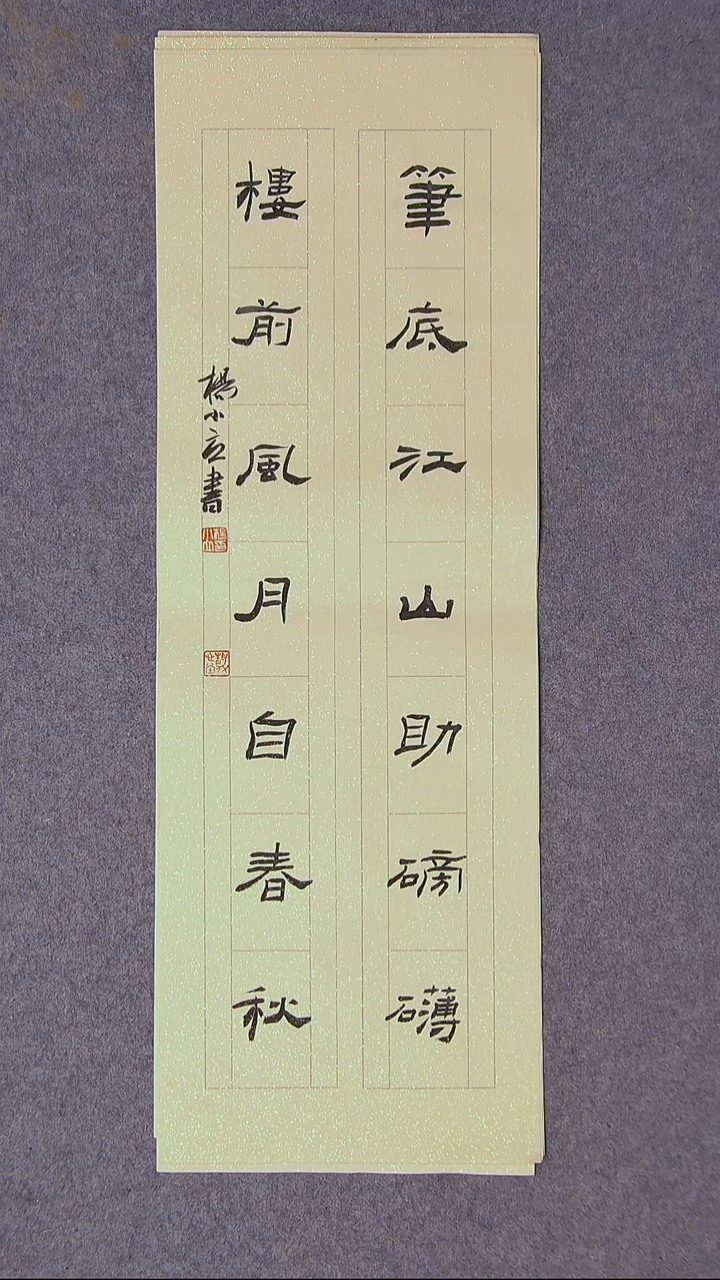 筆底江山助磅礴
樓前風月自春秋
楊小立書